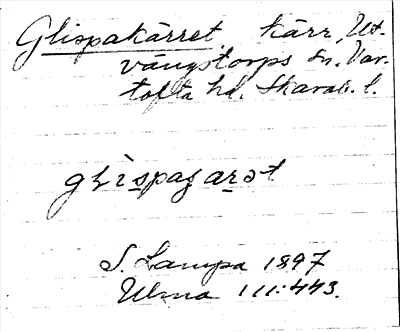 Glispakärret, kärr, Ut-
vängstorps sn. Var-
tofta hd. Skarab. l.
glispaȥarət
S. Lampa 1897
Ulma 111:443.